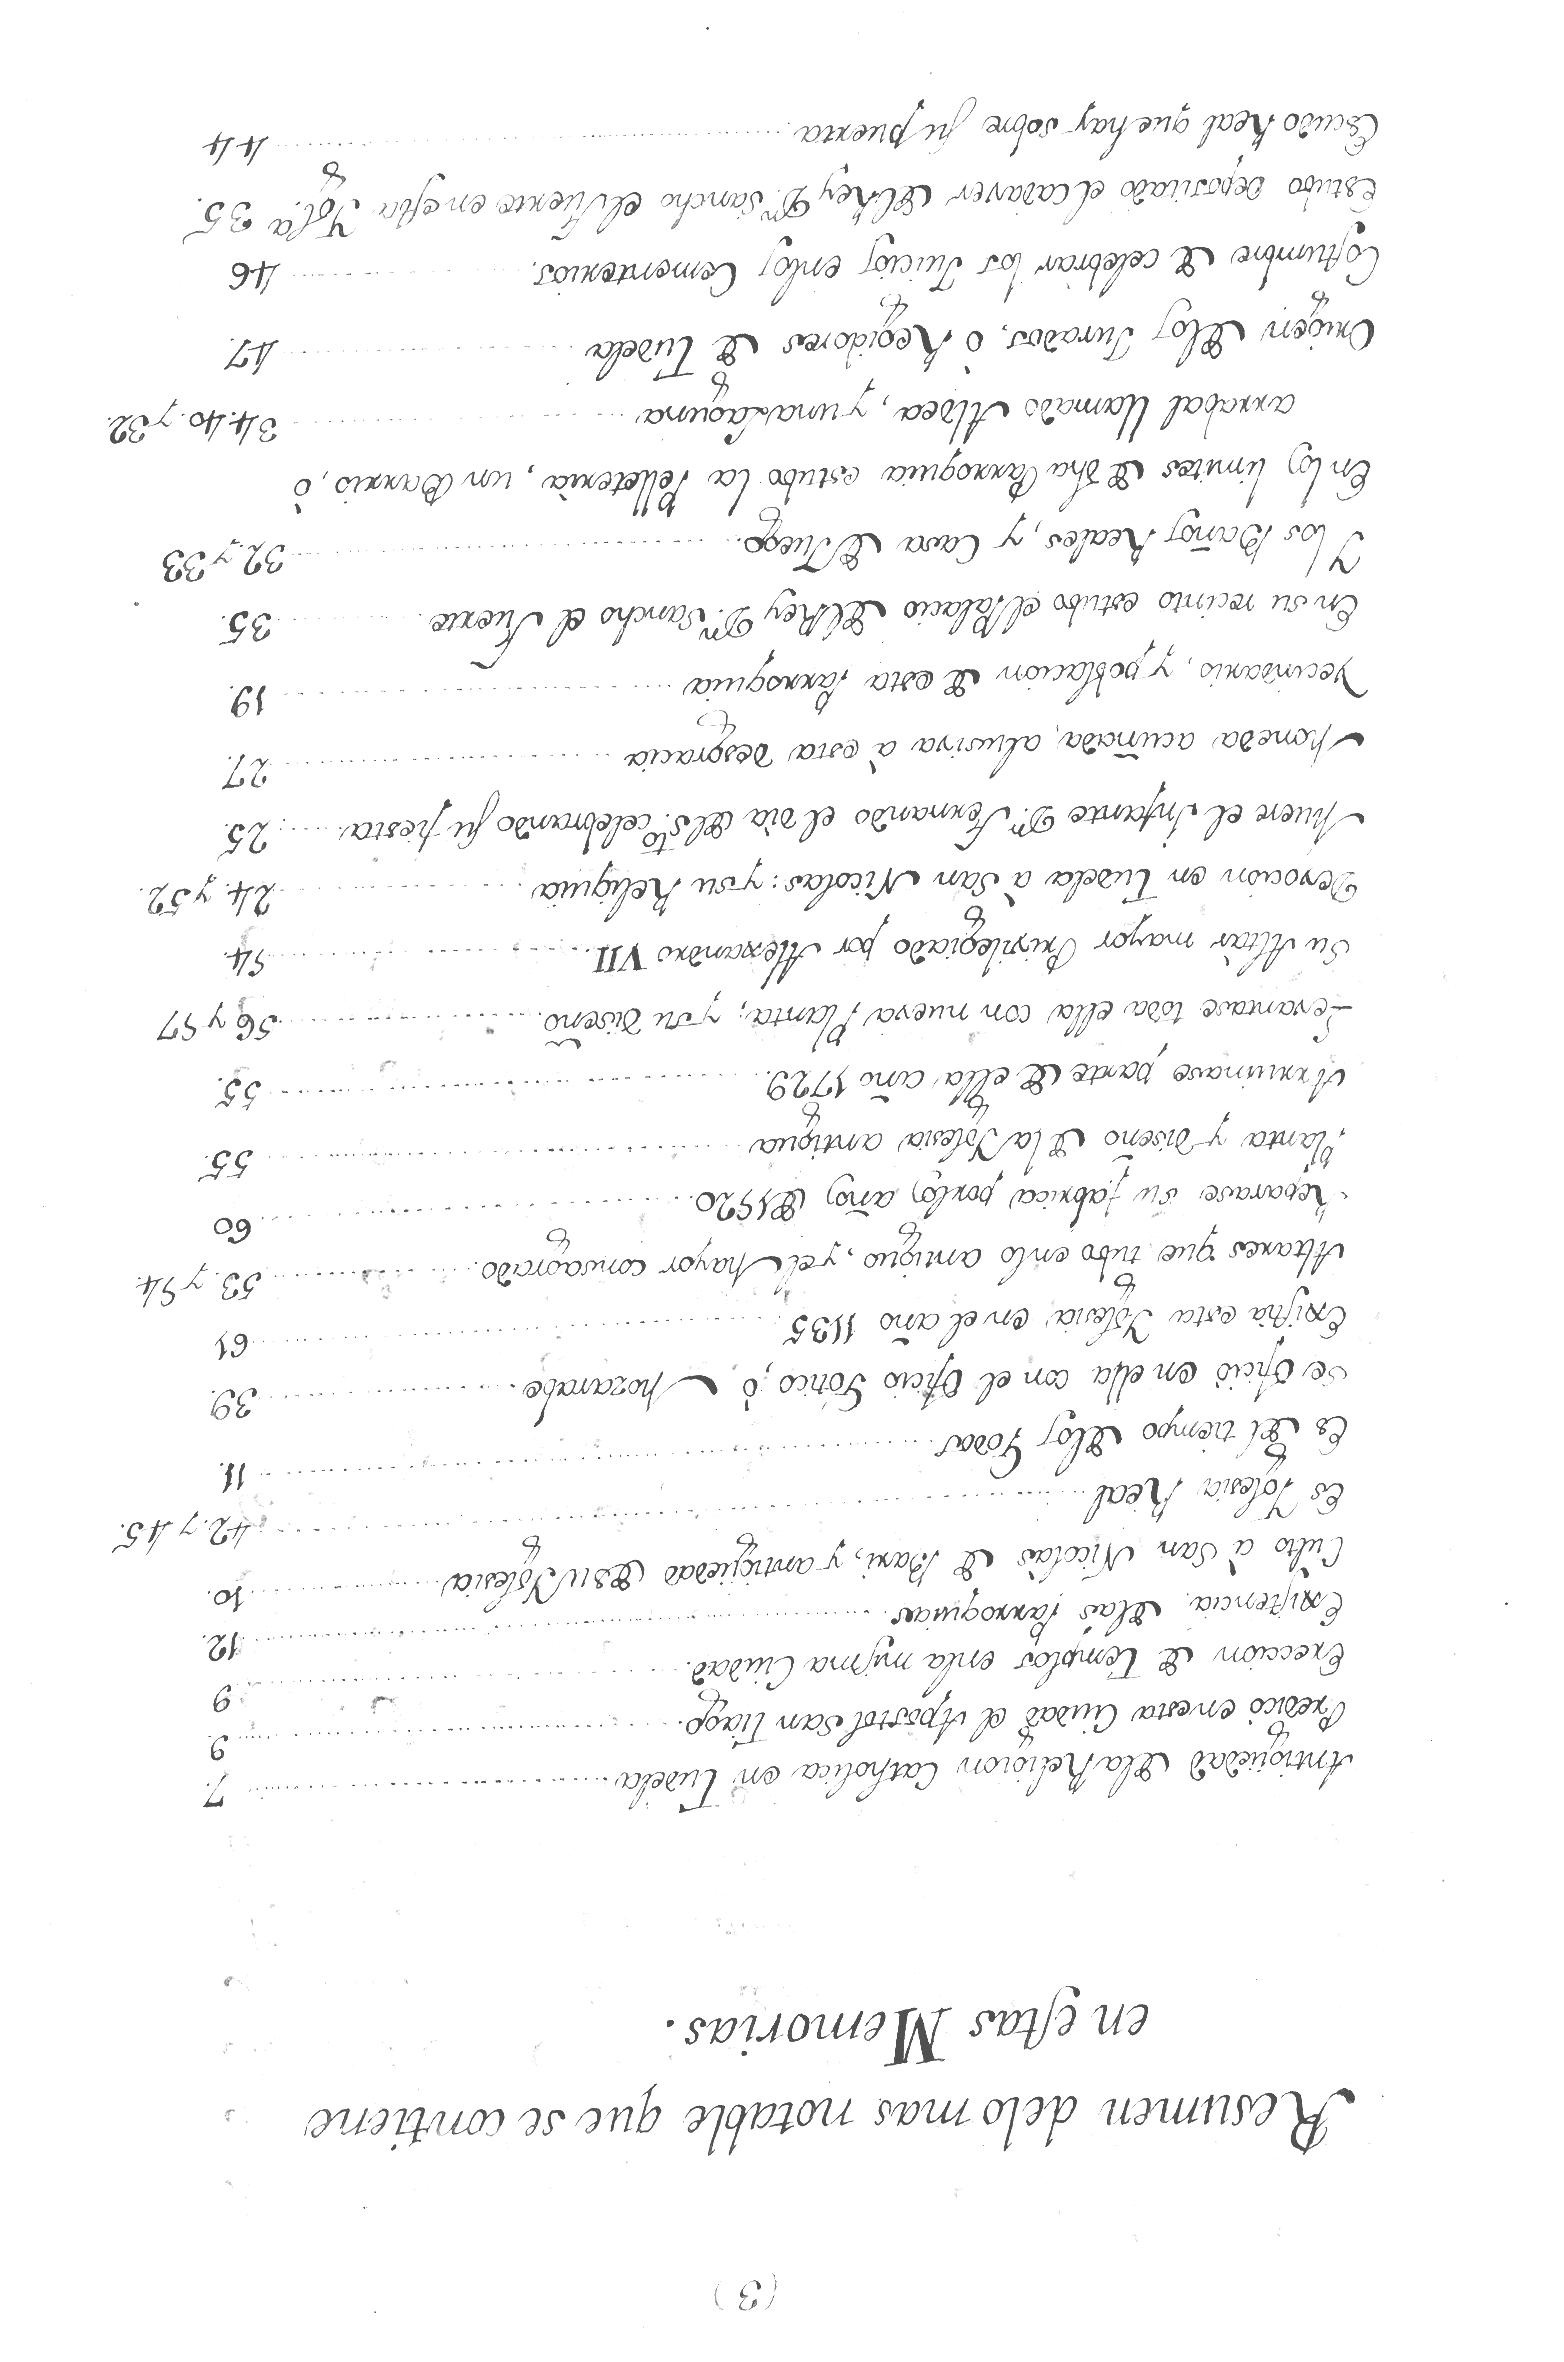 (3)
Resumen delo mas notable que se contiene
en estas Memorias.
Antigüedad de la Religion Catholica en Tudela 7.
Predicò en esta Ciudad el Apostol San Tiago. 9
Ereccion de Templos en la misma Ciudad. 9
Existencia de las Parroquias 12.
Culto à San Nicolàs de Bari, y antigüedad de su Iglesia 10.
Es Iglesia Real 42. y 45.
Es del tiempo de los Godos 11.
Se oficiò en ella con el Oficio Gotico, ò Mozarabe. 39.
Existia esta Iglesia en el año 1135 61
Altares que tubo en lo antiguo, y el Mayor consagrado. 53. y 54.
Reparase su fabrica por los años de 1520. 60
Planta y diseño de la Iglesia antigua 55.
Arruinase parte de ella año 1729. 55.
Levantase toda ella con nueva Planta; y su diseño. 56 y 57
Su Altar mayor Privilegiado por Alexandro VII. 54.
Devocion en Tudela à San Nicolas: y su Reliquia 24. y 52.
Muere el Infante Dn. Fernando el dia del Sto. celebrando su fiesta. 25.
Moneda acuñada, alusiva à esta desgracia 27.
Vecindario, y poblacion de esta Parroquia 19.
En su recinto estubo el Palacio del Rey Dn. Sancho el Fuerte 35.
Y los Baños Reales, y Casa de Juego. 32. y 33
En los limites de dha Parroquia estubo la Pelleteria, un Barrio, ò
arrabal llamado Aldea, y una Laguna 34. 40. y 32.
Origen de los Jurados, ò Regidores de Tudela 47.
Costumbre de celebrar los Juicios en los Cementerios. 46
Estubo depositado el cadaver del Rey Dn. Sancho el Fuerte en esta Igla. 35.
Escudo Real que hay sobre su puerta 44